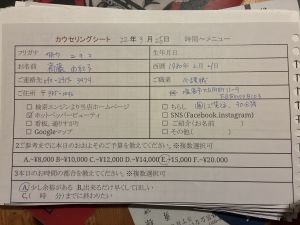 カウンセリングシート 22年3月25日 時間〜メニュー
フリガナ 生年月日
お名前 西暦 1980年2月21日
ご連絡先 ご職業
ご住所 〒
□ 検索エンジンより当店ホームページ □ ちらし
☑ ホットペッパービューティ □ SNS(Facebook.instagram)
□ 看板、通りすがり □ ご紹介(お名前 )
□ Googleマップ □ その他( )
2ご参考までに本日のおおよそのご予算を教えてください。※複数選択可
A.~¥8,000 B~¥10,000 C.~¥12,000 D.~¥14,000 E.~15,000 F.~¥20,000
3本日のお時間の都合を教えてください。※複数選択可
A.少し余裕がある B.出来るだけ早くしてほしい
C.( 時 分)までに終わりたい